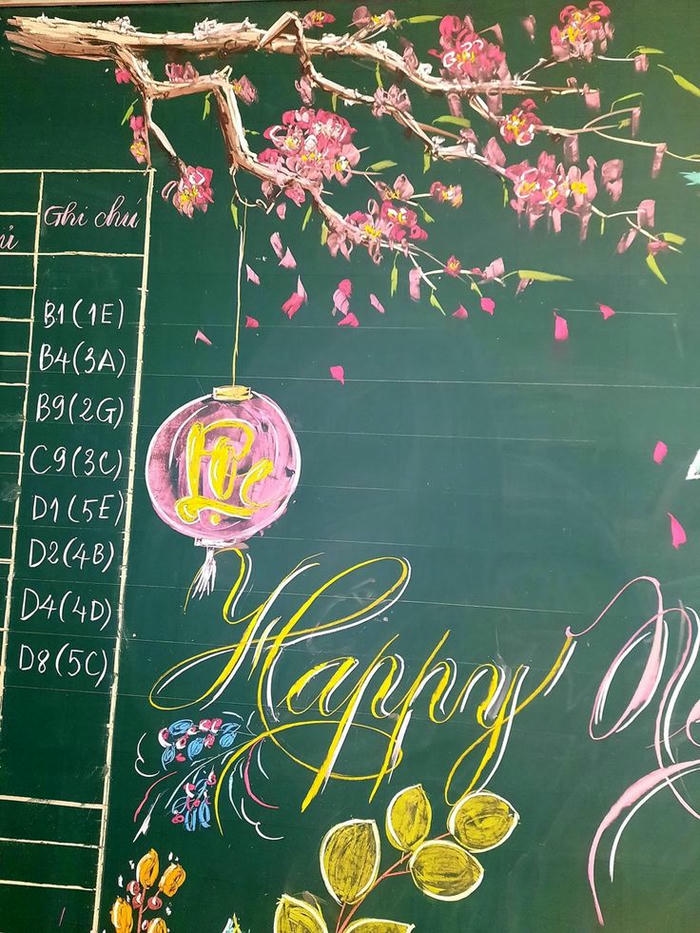 Ghi chú
B1(1E)
B4(3A)
B9(2G)
C9(3C)
D1(5E)
D2(4B)
D4(4D)
D8(5C)
Lộc
Happy